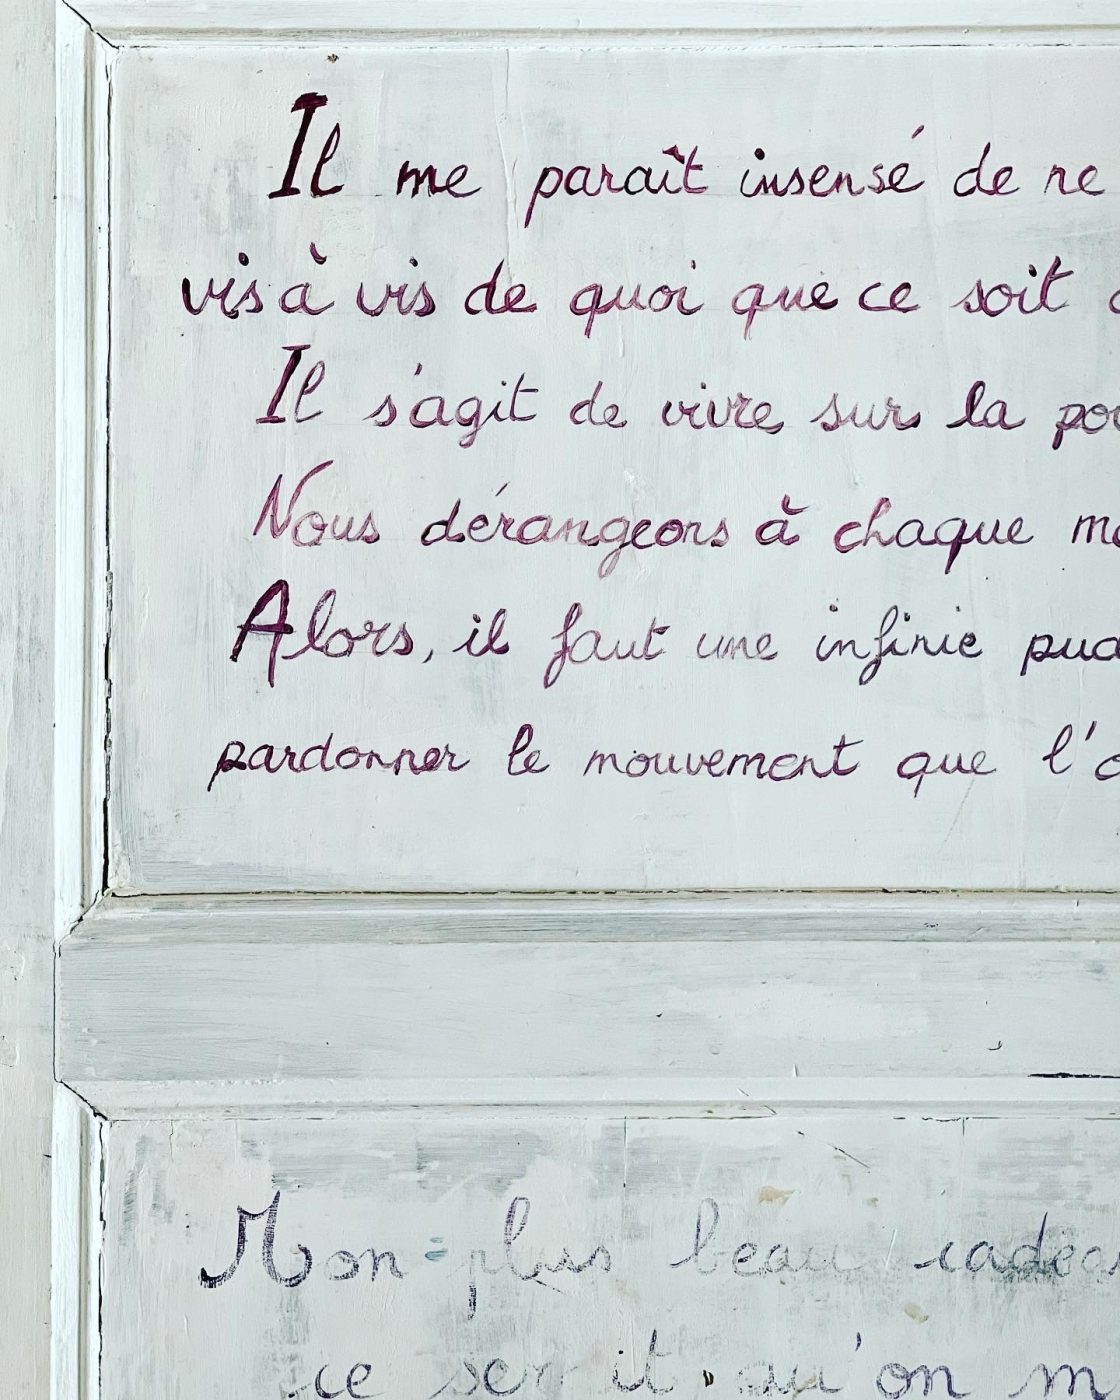 Il me paraît insensé de ne
vis à vis de quoi que ce soit
Il s'agit de vivre sur la
Nous dérangeons à chaque
Alors, il faut une infinie
pardonner le mouvement que
Mon plus beau
ce serait qu'on